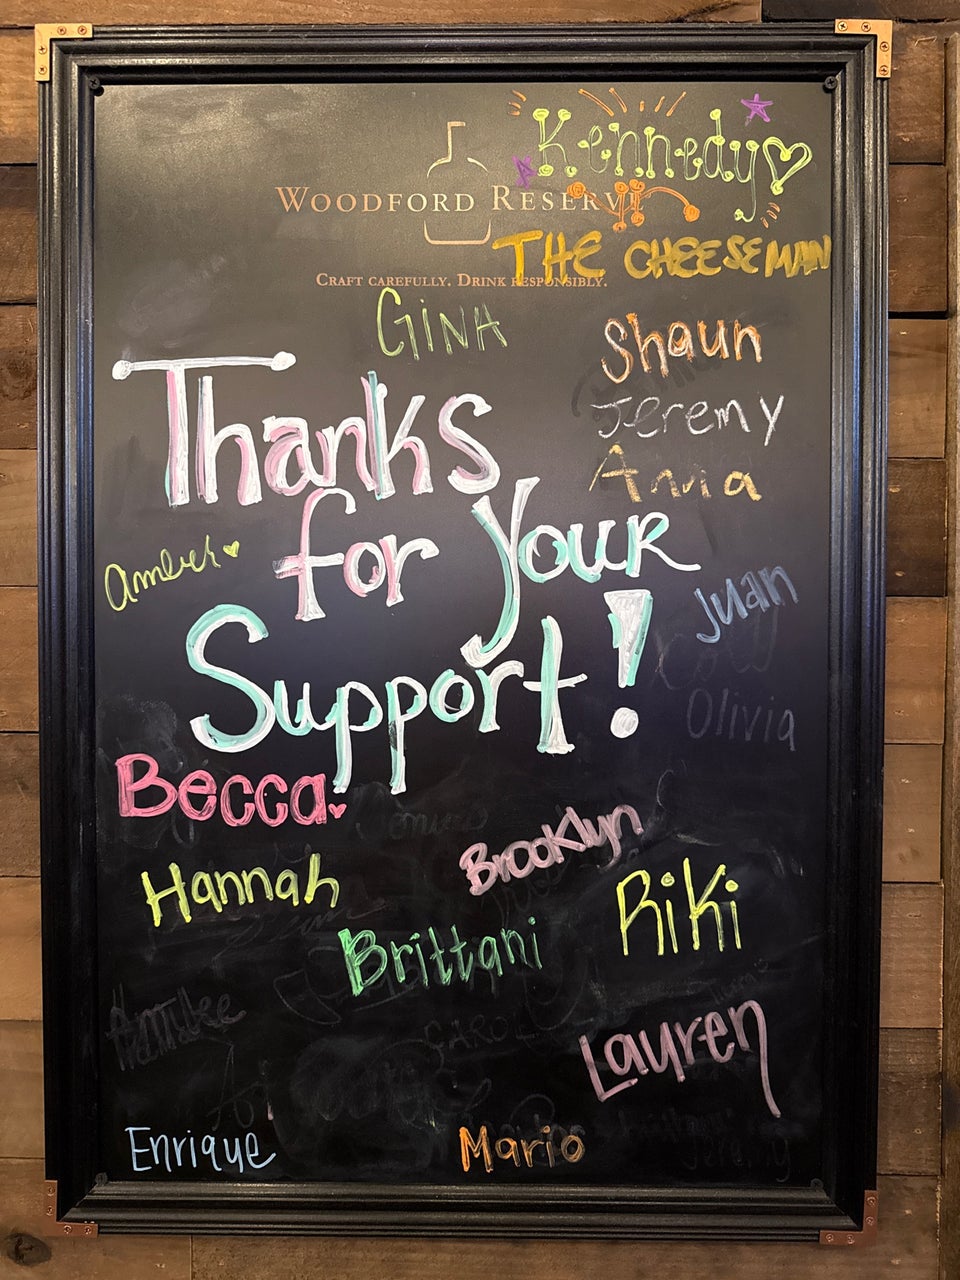 Kennedy
WOODFORD RESERVE
THE CHEESEMAN
CRAFT CAREFULLY. DRINK RESPONSIBLY.
GINA
Shaun
Jeremy
Anna
Thanks
for your
Support!
Amber
Juan
Olivia
Becca
Brooklyn
Hannah
Riki
Brittani
Lauren
Enrique
Mario
Jeremy